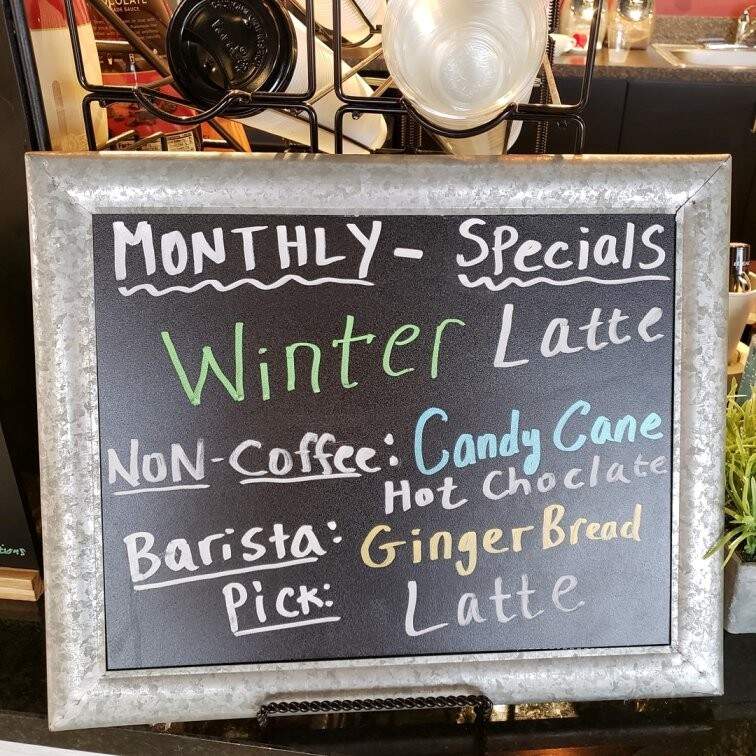 MONTHLY - SPecialS
Winter Latte
NON-Coffee: Candy Cane
Hot Choclate
Barista: GingerBread
Pick: Latte